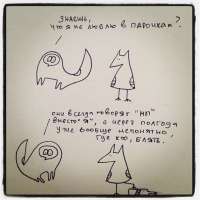 знаешь,
что я не люблю в парочках?
они всегда говорят "мы"
вместо "я", а через полгода
уже вообще непонятно,
где кто, блять.